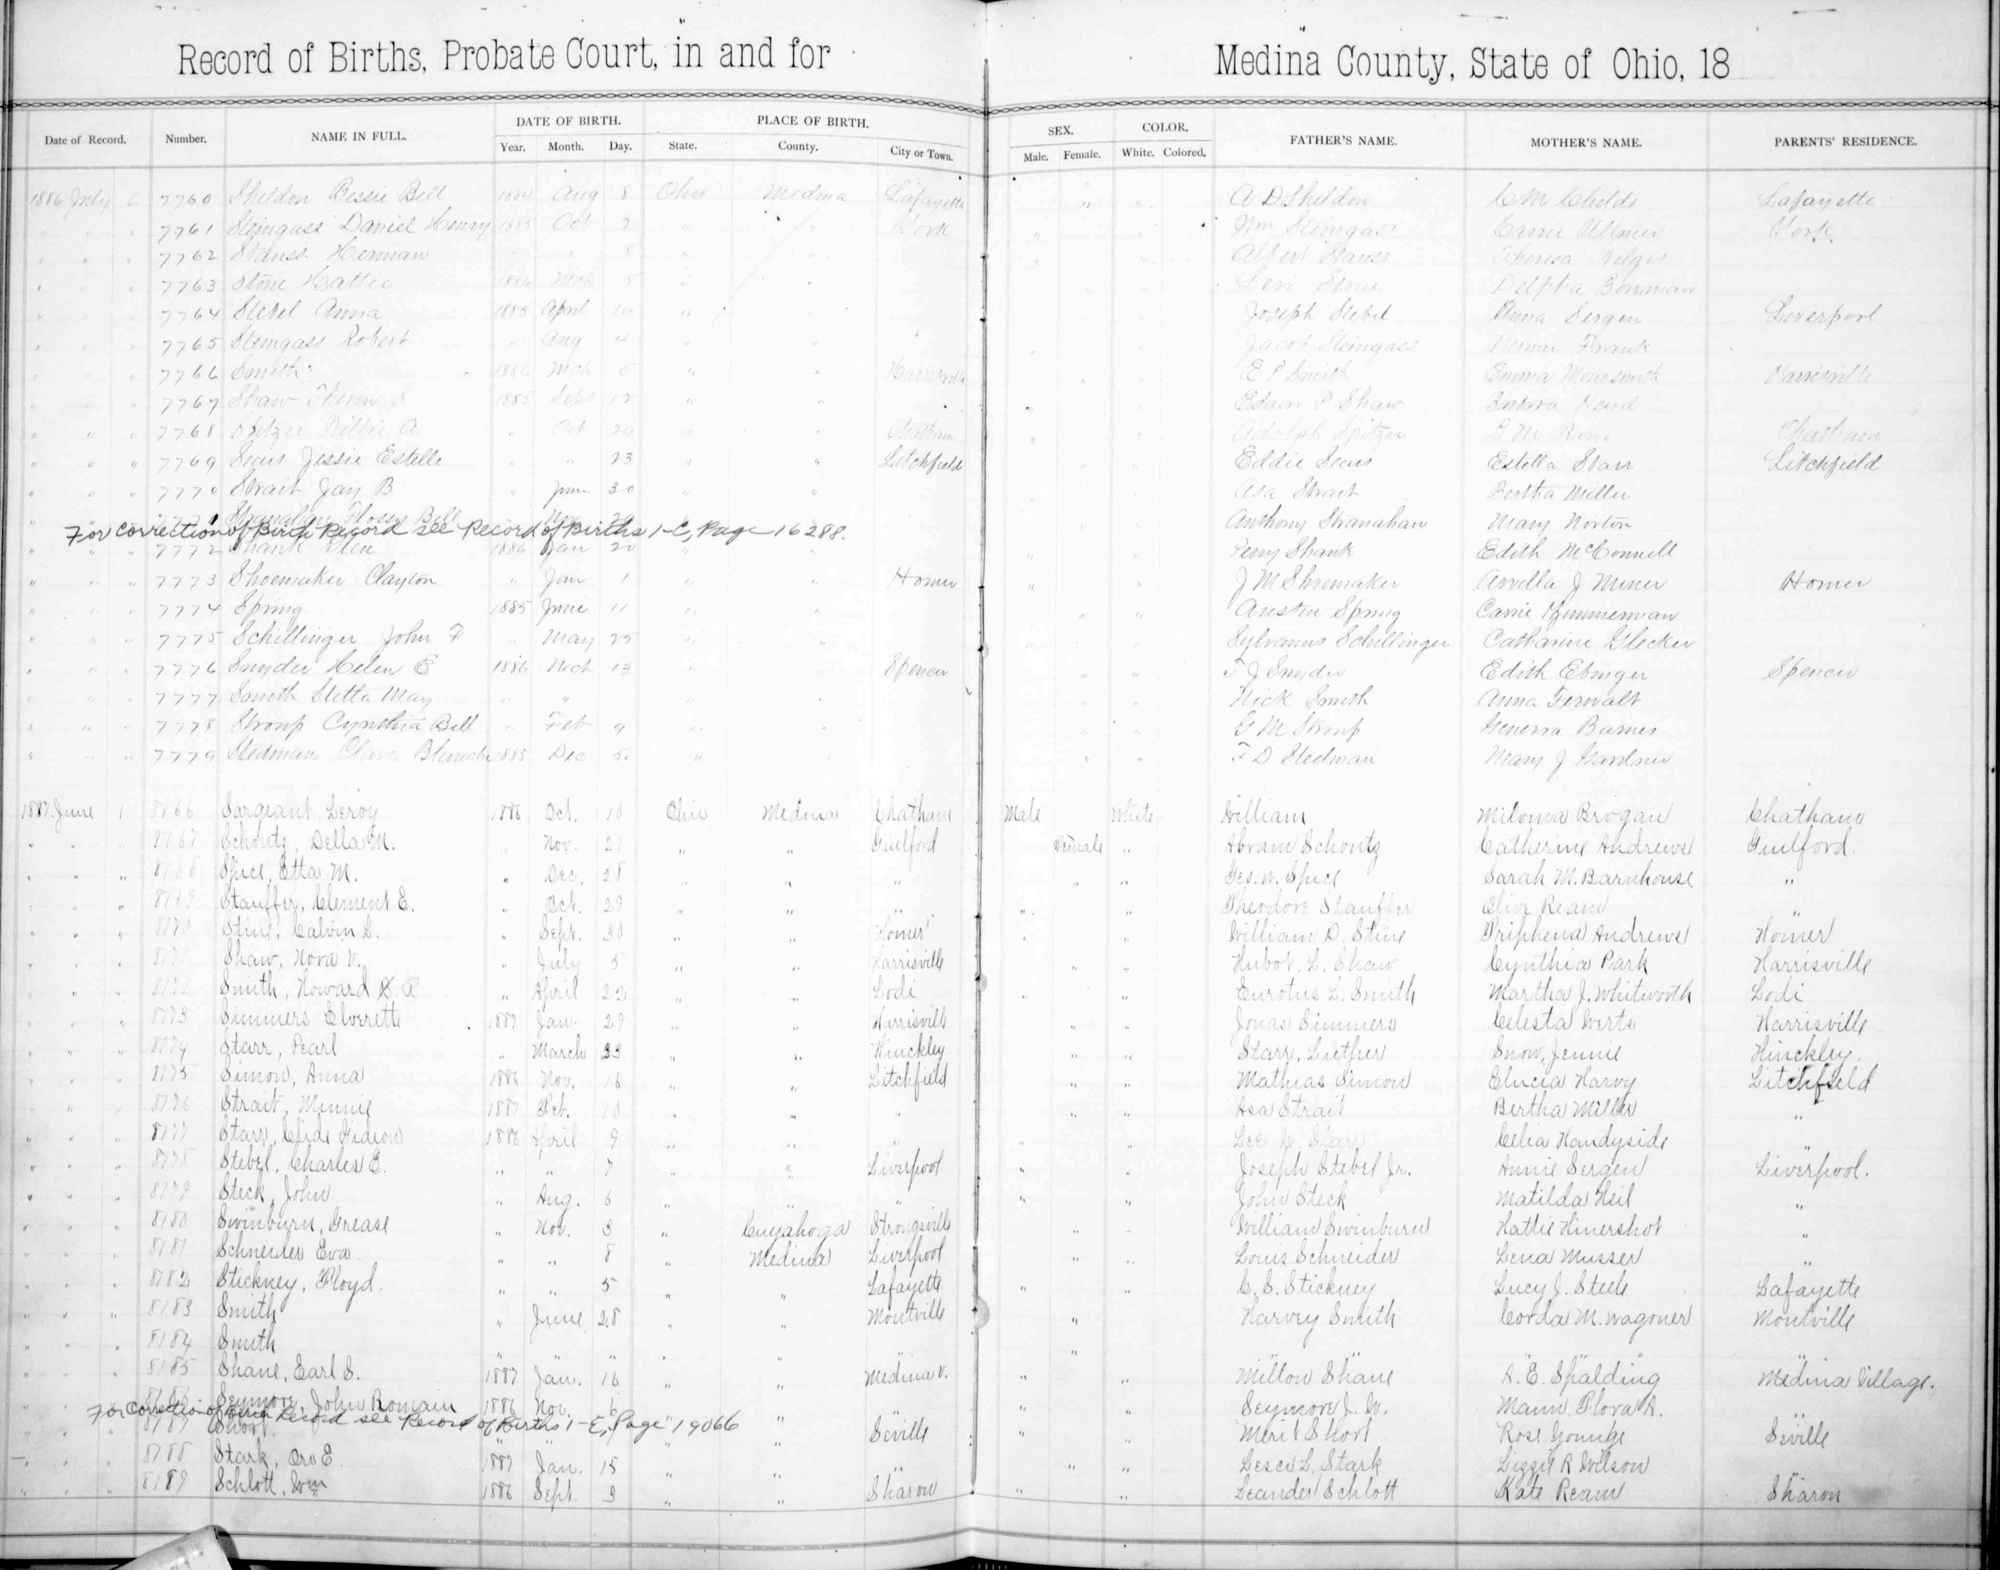 Record of Births, Probate Court, in and for Medina County, State of Ohio, 18
Date of Record. Number. NAME IN FULL. DATE OF BIRTH. Year. Month. Day. PLACE OF BIRTH. State. County. City or Town. SEX. Male. Female. COLOR. White. Colored. FATHER'S NAME. MOTHER'S NAME. PARENTS' RESIDENCE.
1886 July 6 7760 Sheldon Bessie Bell 1884 Aug 8 Ohio Medina Lafayette " " A D Sheldon C M Childs Lafayette
" " " 7761 Steingass Daniel Henry 1885 Oct 2 " " York " " Wm Steingass Carrie York
" " " 7762 Stauss Herman " " 8 " " Albert Stauss Theresa
" " " 7763 Stone Hattie 1886 Mch 5 " " Levi Stone Delpha Bowman
" " " 7764 Stebel Anna 1885 April 16 " " Joseph Stebel Anna Sergen Liverpool
" " " 7765 Steingass Robert " Aug " " Jacob Steingass Frank
" " " 7766 Smith 1886 Mch 5 " " Harrisville " E P Smith Emma Harrisville
" " " 7767 Shaw 1885 Sept 12 " " " Edson P Shaw
" " " 7768 Spitzer A " Oct 20 " " Chatham Adolph Spitzer L M Rowe Chatham
" " " 7769 Sears Jessie Estelle " " 23 " " Litchfield Eddie Sears Estella Starr Litchfield
" " " 7770 Strait Jay B " June 30 " " Asa Strait Bertha Miller
7771 Stranahan Flossy Bell " Nov Anthony Stranahan Mary Norton
For correction of Birth Record see Record of Births 1-C, Page 16288.
" " " 7772 Shank Glen 1886 Jan 20 " " " " Perry Shank Edith McConnell
" " " 7773 Shoemaker Clayton " Jan 1 " " Homer " " J M Shoemaker Arvilla J Miner Homer
" " " 7774 Spring 1885 June 11 " " " " Austin Spring Carrie Zimmerman
" " " 7775 Schillinger John F " May 25 " " " " Sylvanus Schillinger Catharine Glecker
" " " 7776 Snyder Helen E 1886 Mch 13 " " Spencer " " F J Snyder Edith Ebinger Spencer
" " " 7777 Smith Stetta May " " " " " " Nick Smith Anna Ferwalt
" " " 7778 Stroup Cynthia Bell " Feb 9 " " " " G M Stroup Genevra Barnes
" " " 7779 Stedman Clara Blanche 1885 Dec 5 " " " " F D Stedman Mary J Gardner
1887 June 1 8166 Sargeant Leroy 1886 Oct. 10 Ohio Medina Chatham Male White William Miloma Brogan Chatham
" " " 8167 Schontz, Della M. " Nov. 21 " " Guilford Female " Abram Schontz Catherine Andrews Guilford.
" " " 8168 Spice, Etta M. " Dec. 28 " " " " " Geo. W. Spice Sarah M. Barnhouse "
" " " 8169 Stauffer, Clement E. " Oct. 29 " " " " " Theodore Stauffer Olive Ream "
" " " 8170 Stine, Calvin D. " Sept. 30 " " Homer " " William D. Stine Triphena Andrews Homer
" " " 8171 Shaw, Nora V. " July 5 " " Harrisville " " Hubot. L. Shaw Cynthia Park Harrisville
" " " 8172 Smith, Howard R " April 22 " " Lodi " " Eurotus L. Smith Martha J. Whitworth Lodi
" " " 8173 Simmers Elverette 1887 Jan. 29 " " Harrisville " " Jonas Simmers Celesta Werts Harrisville
" " " 8174 Starr, Pearl " March 23 " " Hinckley " " Starr, Luther Snow, Jennie Hinckley.
" " " 8175 Simon, Anna 1886 Nov. 16 " " Litchfield " " Mathias Simon Elucia Harvy Litchfield
" " " 8176 Strait, Minnie 1887 Feb. 10 " " " " " Asa Strait Bertha Miller "
" " " 8177 Starr, Clide Gideon 1886 April 9 " " " " " Lee Starr Celia Handyside "
" " " 8178 Stebel, Charles E. " " 7 " " Liverpool " " Joseph Stebel Jr. Annie Sergen Liverpool.
" " " 8179 Steck, John " Aug. 6 " " " " " John Steck Matilda Heil "
" " " 8180 Swinburn, Grease " Nov. 3 " Cuyahoga Strongsville " " William Swinburn Hattie Hinershot "
" " " 8181 Schneider Eva " " 8 " Medina Liverpool " " Louis Schneider Lena Musser "
" " " 8182 Stickney, Floyd. " " 5 " " Lafayette " " C. E. Stickney Lucy J. Steele Lafayette
" " " 8183 Smith " June 28 " " Montville " " Harvey Smith Corda M. Wagoner Montville
" " " 8184 Smith " " " " " " " " " " "
" " " 8185 Shane, Earl E. 1887 Jan. 16 " " Medina V. " " Milton Shane A. E. Spalding Medina Village.
" " " 8186 Seymore, John Romain 1886 Nov. 6 " " " " " Seymore J. W. Mann, Flora A. "
For correction of Birth Record see Record of Births 1-E, Page 19066
" " " 8187 Short " " Seville " " Merit Short Rose Younge Seville
" " " 8188 Stark, Oro E. 1887 Jan. 15 " " " " " L. Stark Lizzie R Wilson "
" " " 8189 Schlott, Wm 1886 Sept. 3 " " Sharon " " Leander Schlott Kate Ream Sharon